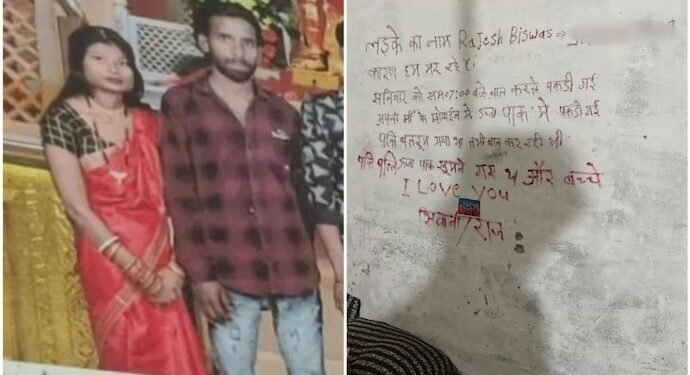 लड़के का नाम Rajesh Biswas
कारण हम मर रहे है।
शनिवार को समय 7:00 बजे बात करते पकडी गई
अपनी माँ के मोबाईल से ऊर्जा पाक मे पकडी गई
पति बातरूम गया था तभी बात कर रही थी
पति पत्नि ऊर्जा पाक घुमने गए थे और बच्चे
I Love You
शिवानी/राज